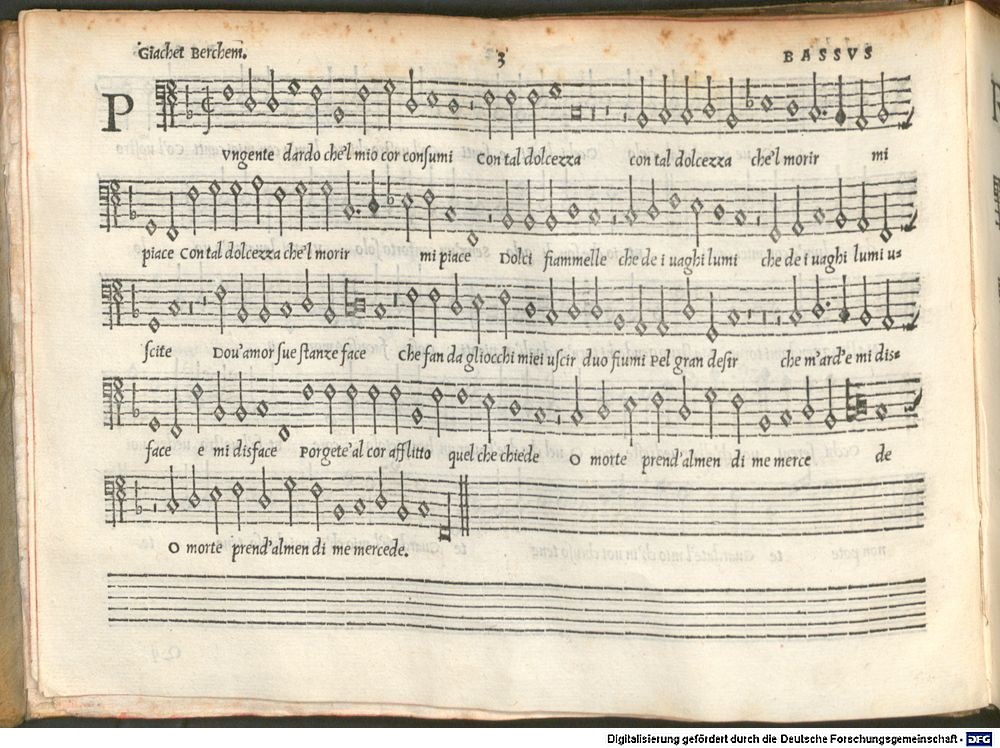 Giachet Berchem. 3 BASSVS
P vngente dardo che'l mio cor consumi Con tal dolcezza con tal dolcezza che'l morir mi
piace Con tal dolcezza che'l morir mi piace Dolci fiammelle che de i uaghi lumi che de i uaghi lumi u=
scite Dou'amor sue stanze face Che fan da gliocchi miei uscir duo fiumi Pel gran desir che m'ard'e mi dis=
face e mi disface Porgete'al cor afflitto quel che chiede O morte prend'almen di me merce de
O morte prend'almen di me mercede.
Digitalisierung gefördert durch die Deutsche Forschungsgemeinschaft - DFG